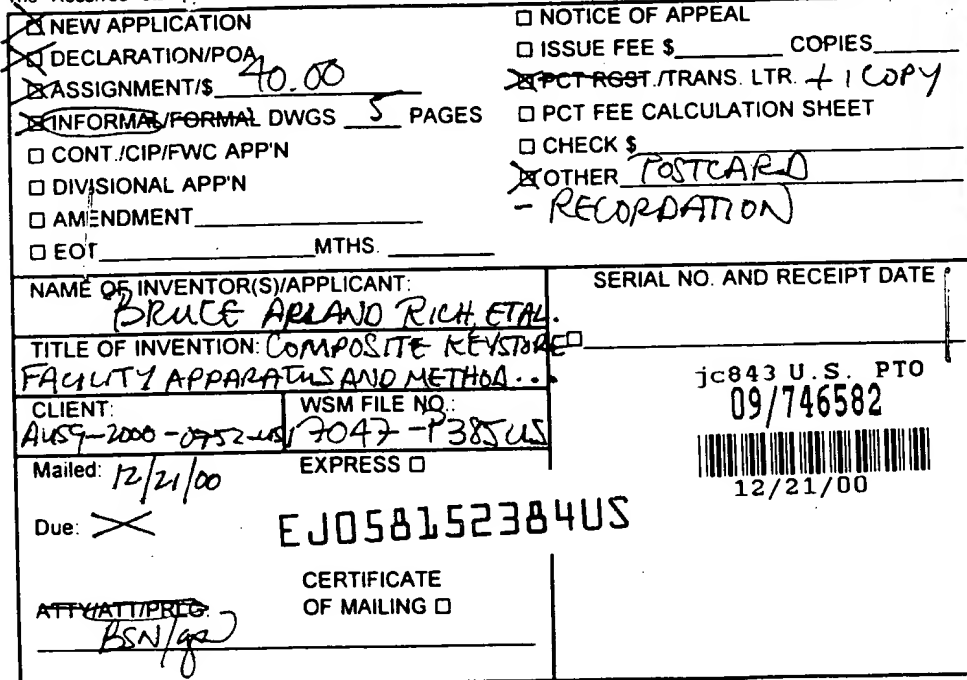 ☒ NEW APPLICATION
☒ DECLARATION/POA
☒ ASSIGNMENT/$ 40.00
☒ INFORMAL/FORMAL DWGS 5 PAGES
☐ CONT./CIP/FWC APP'N
☐ DIVISIONAL APP'N
☐ AMENDMENT
☐ EOT MTHS.
☐ NOTICE OF APPEAL
☐ ISSUE FEE $ COPIES
☒ PCT RGST./TRANS. LTR. + 1 COPY
☐ PCT FEE CALCULATION SHEET
☐ CHECK $
☒ OTHER POSTCARD
- RECORDATION
NAME OF INVENTOR(S)/APPLICANT:
BRUCE ARLAND RICH, ETAL.
TITLE OF INVENTION: COMPOSITE KEYSTORE
FACILITY APPARATUS AND METHOD...
CLIENT:
AUS9-2000-0752-US1
WSM FILE NO.:
7047-P385US
Mailed: 12/21/00
EXPRESS ☐
Due:
EJ058152384US
CERTIFICATE
OF MAILING ☐
ATTY/ATT/PRLG.
BSN/
SERIAL NO. AND RECEIPT DATE
jc843 U.S. PTO
09/746582
12/21/00